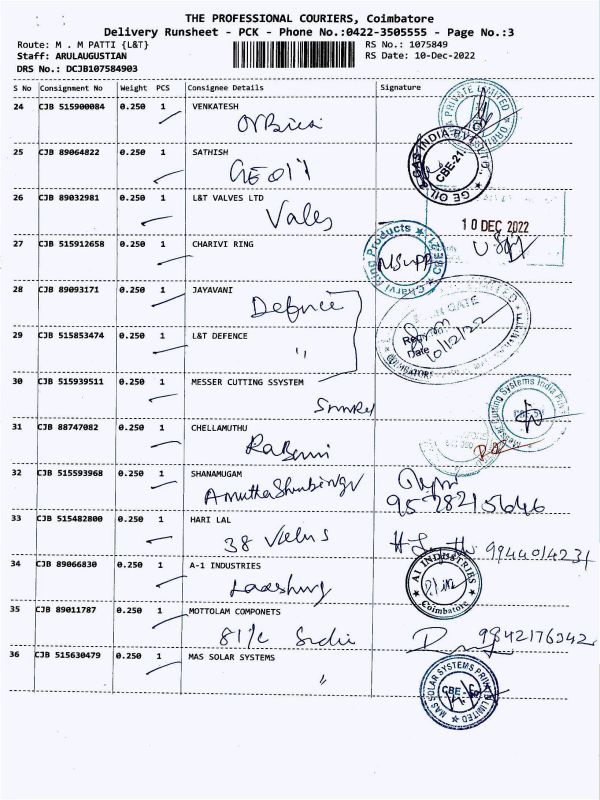 THE PROFESSIONAL COURIERS, Coimbatore
Delivery Runsheet - PCK - Phone No.:0422-3505555 - Page No.:3
Route: M . M PATTI {L&T}
RS No.: 1075849
Staff: ARULAUGUSTIAN
RS Date: 10-Dec-2022
DRS No.: DCJB107584903
S No Consignment No Weight PCS Consignee Details Signature
24 CJB 515900084 0.250 1 VENKATESH
PRIVATE LIMITED
25 CJB 89064822 0.250 1 SATHISH
GE OIL & GAS INDIA PVT. LTD.,
CBE-21.
GE Oil
26 CJB 89032981 0.250 1 L&T VALVES LTD
Vales
10 DEC 2022
27 CJB 515912658 0.250 1 CHARIVI RING
Charvi Ring Products
CBE-21
28 CJB 89093171 0.250 1 JAYAVANI
Defence
GATE
Date 10/12/22
29 CJB 515853474 0.250 1 L&T DEFENCE
"
COIMBATORE
30 CJB 515939511 0.250 1 MESSER CUTTING SSYSTEM
Messer Cutting Systems India
31 CJB 88747082 0.250 1 CHELLAMUTHU
32 CJB 515593968 0.250 1 SHANAMUGAM
33 CJB 515482800 0.250 1 HARI LAL
38 9944014231
34 CJB 89066830 0.250 1 A-1 INDUSTRIES
A1 INDUSTRIES
Coimbatore
35 CJB 89011787 0.250 1 MOTTOLAM COMPONETS
9842176342
36 CJB 515630479 0.250 1 MAS SOLAR SYSTEMS
"
MAS SOLAR SYSTEMS PRIVATE LIMITED
CBE